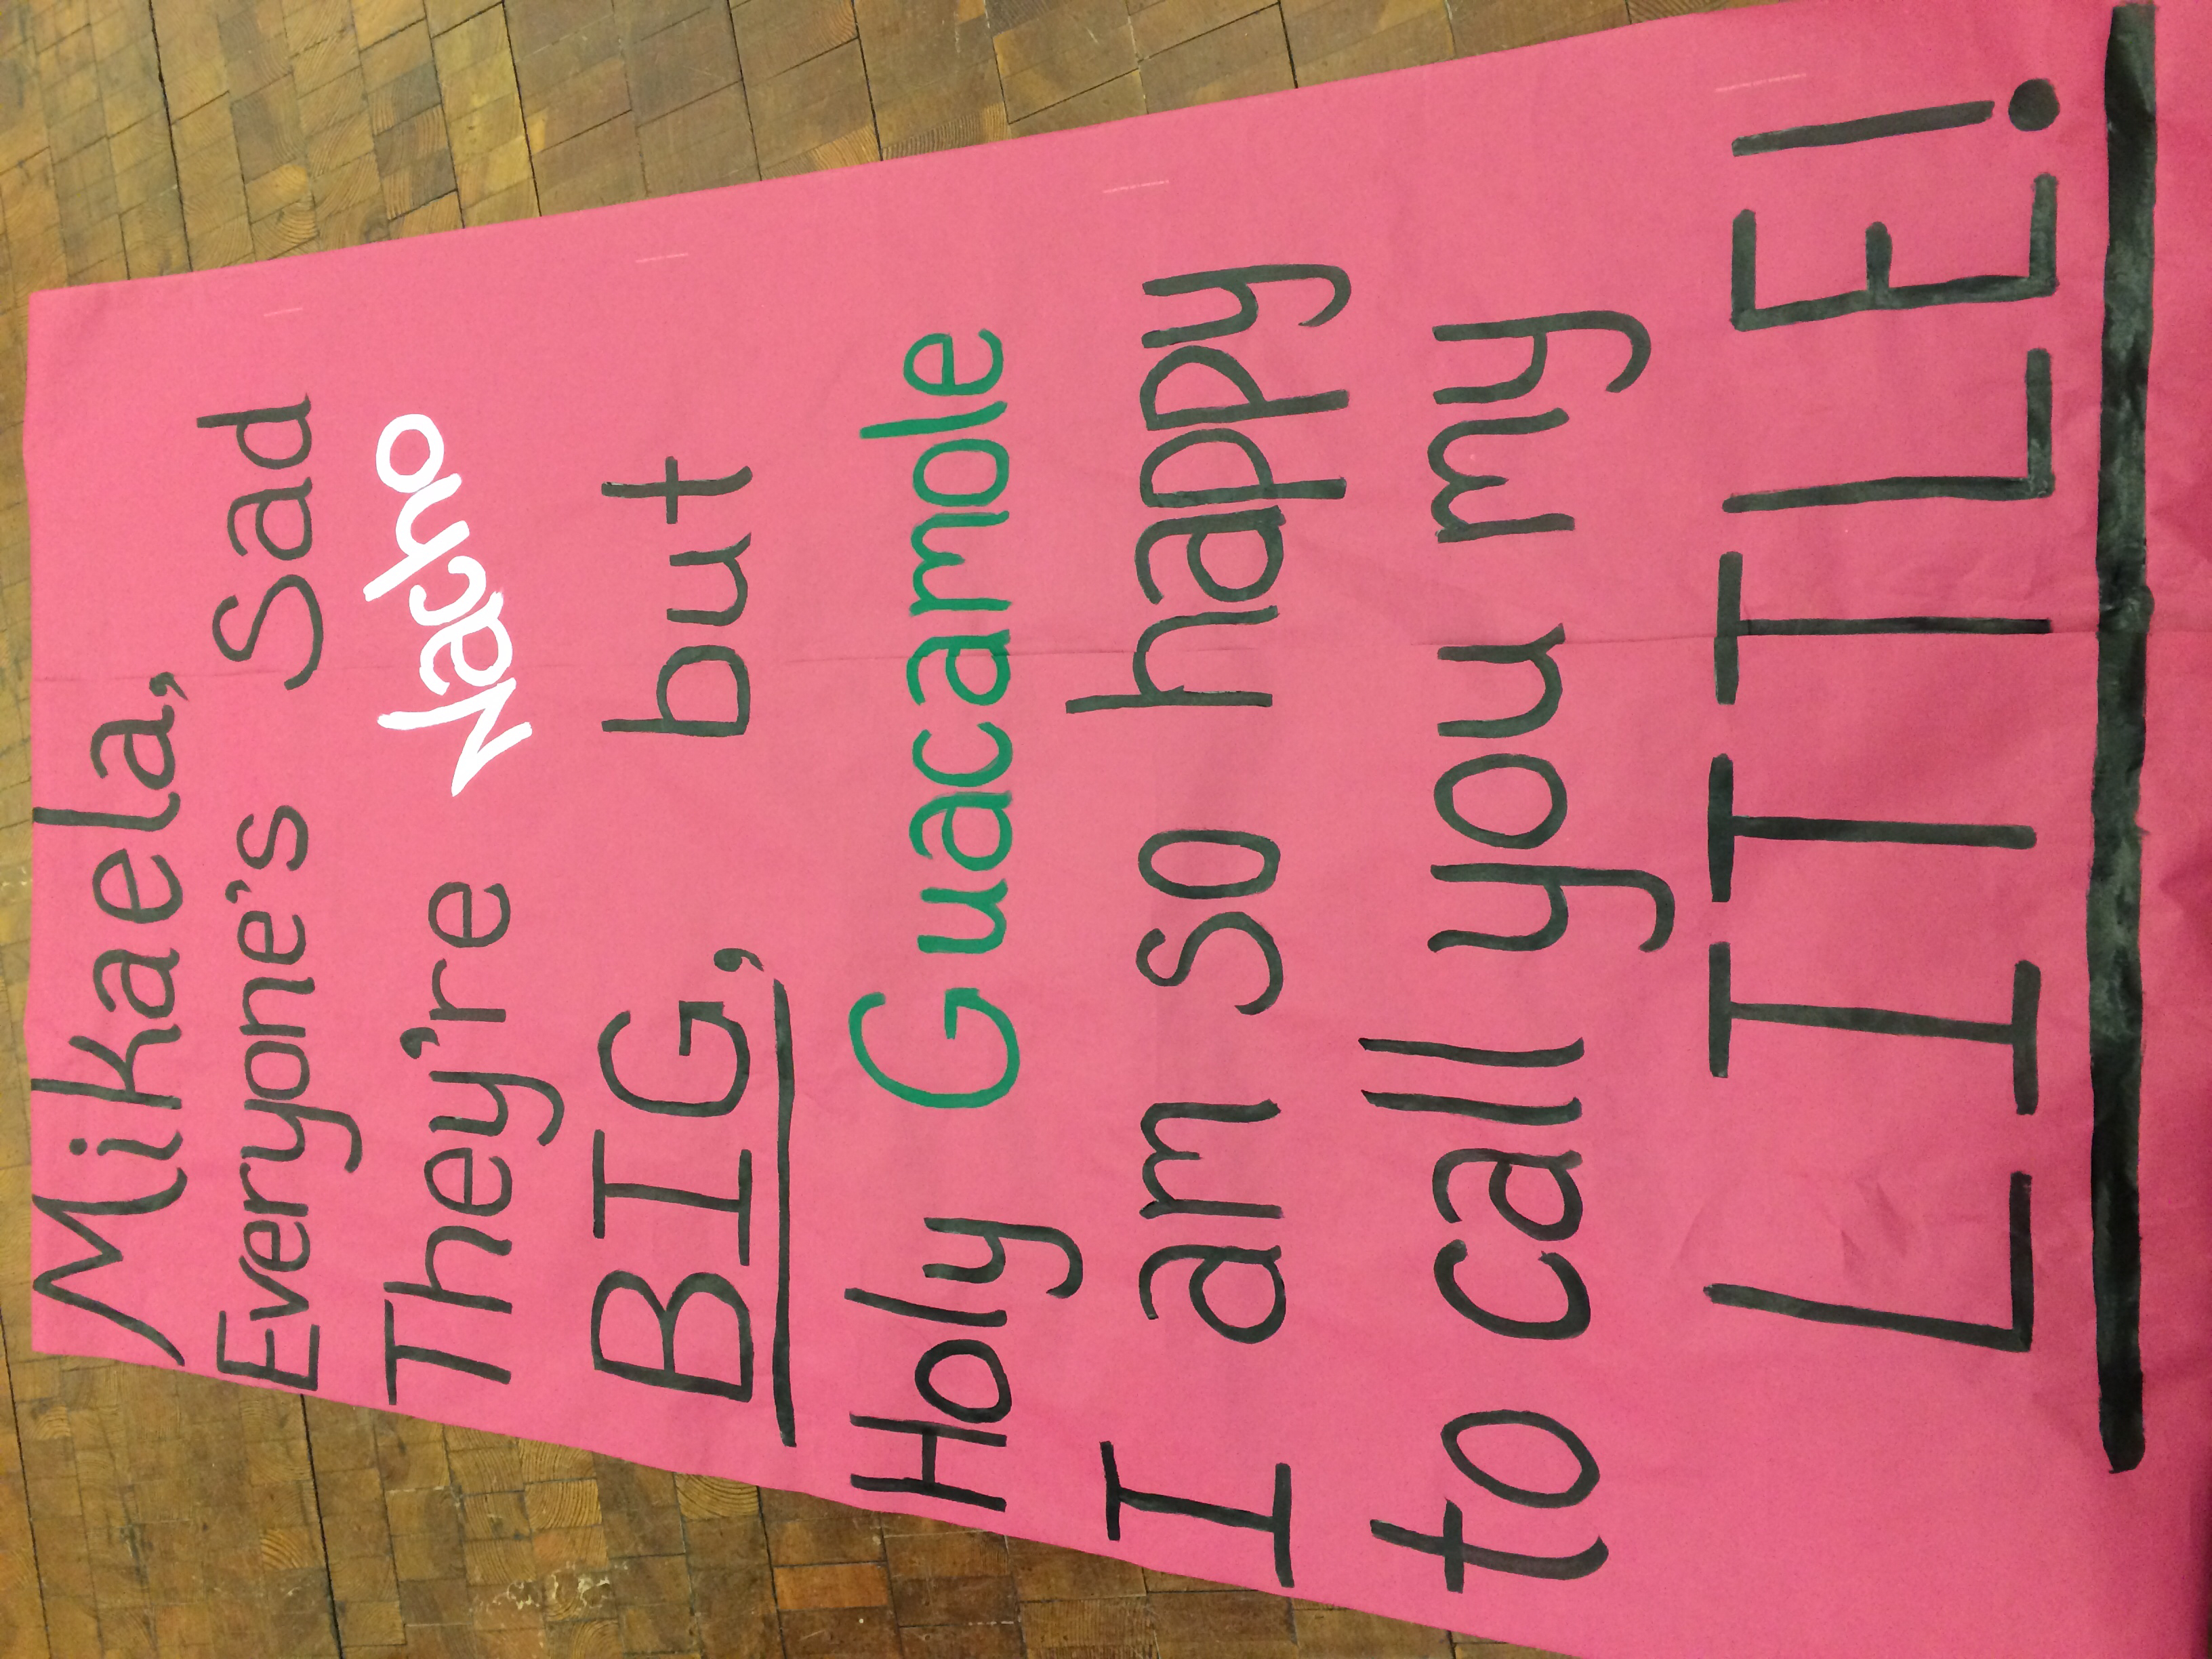 Mikaela,
Everyone's Sad
They're Nacho
BIG, but
Holy Guacamole
I am so happy
to call you my
LITTLE!